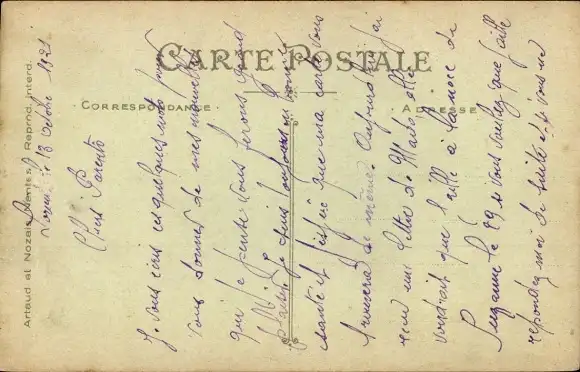 CARTE POSTALE
CORRESPONDANCE
ADRESSE
Artaud et Nozais, Nantes Reprod. interd.
18 Octobre 1921
Chers Parents
Je vous écris ces quelques mots pour
vous donner de mes nouvelles
qui je pense vous ferons grand
plaisir je suis toujours en bonne
santé et j'espère que ma carte vous
trouvera de même. Aujourd'hui j'ai
reçu une lettre de
voudrait que j'aille à la noce de
Suzanne le 29 si vous voulez que j'aille
repondez moi de suite et si vous ne